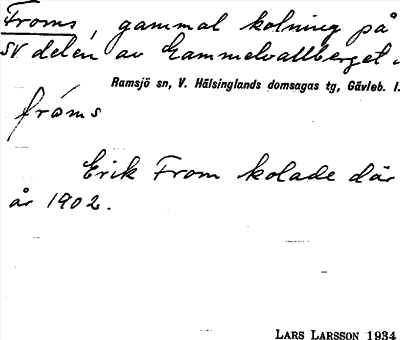 Froms, gammal kolning på
SV delen av Gammelvallberget.
Ramsjö sn, V. Hälsinglands domsagas tg, Gävleb. l.
frøms
Erik From kolade där
år 1902.
LARS LARSSON 1934